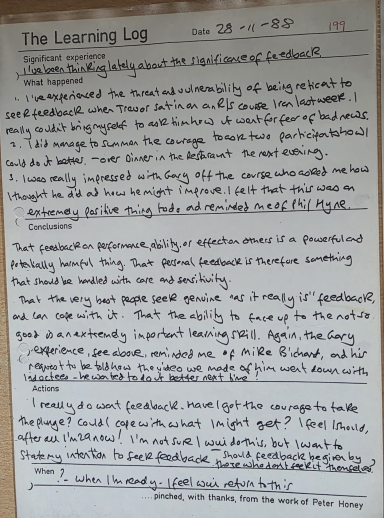 The Learning Log
Date 28-11-88
199
Significant experience
I've been thinking lately about the significance of feedback.
What happened
1. I've experienced the threat and vulnerability of being reticent to
seek feedback when Trevor sat in on an R/S course I ran last week. I
really couldn't bring myself to ask him how it went for fear of bad news.
2. I did manage to summon the courage to ask two participants how I
could do it better. - over Dinner in the Restaurant the next evening.
3. I was really impressed with Gary off the course who asked me how
I thought he did and how he might improve. I felt that this was an
extremely positive thing to do and reminded me of Phil Hyne.
Conclusions
That feedback on performance, ability, or effect on others is a powerful and
potentially harmful thing. That personal feedback is therefore something
that should be handled with care and sensitivity.
That the very best people seek genuine "as it really is" feedback,
and can cope with it. That the ability to face up to the not so
good is an extremely important learning skill. Again, the Gary
experience, see above, reminded me of Mike and his
request to be told how the video we made of him went down with
inductees - he wanted to do it better next time!
Actions
I really do want feedback. Have I got the courage to take
the plunge? Could I cope with what I might get? I feel I should,
after all I'm 29 now! I'm not sure I will do this, but I want to
state my intention to seek feedback - should feedback be given by
those who don't seek it themselves?
When ? - When I'm ready - I feel I will return to this
....pinched, with thanks, from the work of Peter Honey